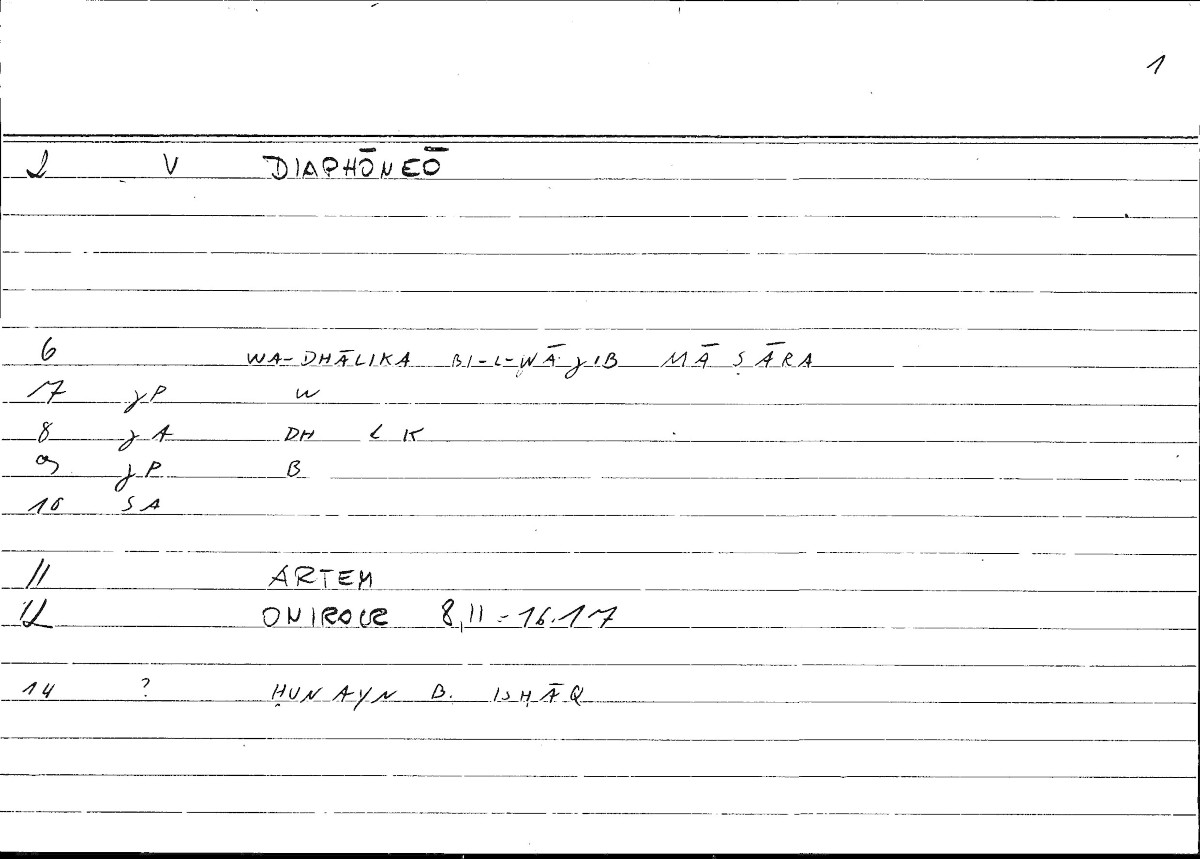 1
2 V DIAPHŌNEŌ
6 WA-DHĀLIKA BI-L-WĀǧIB MĀ ṢĀRA
7 ǧP W
8 ǧA DH L K
9 ǧP B
10 SA
11 ARTEM
12 ONIROCR 8,11-16.17
14 ? ḤUNAYN B. ISḤĀQ